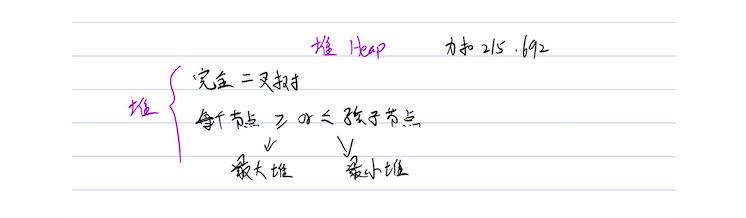 堆 Heap 力扣 215.692
完全二叉树
堆
每个节点 ≥ or ≤ 孩子节点
最大堆 最小堆